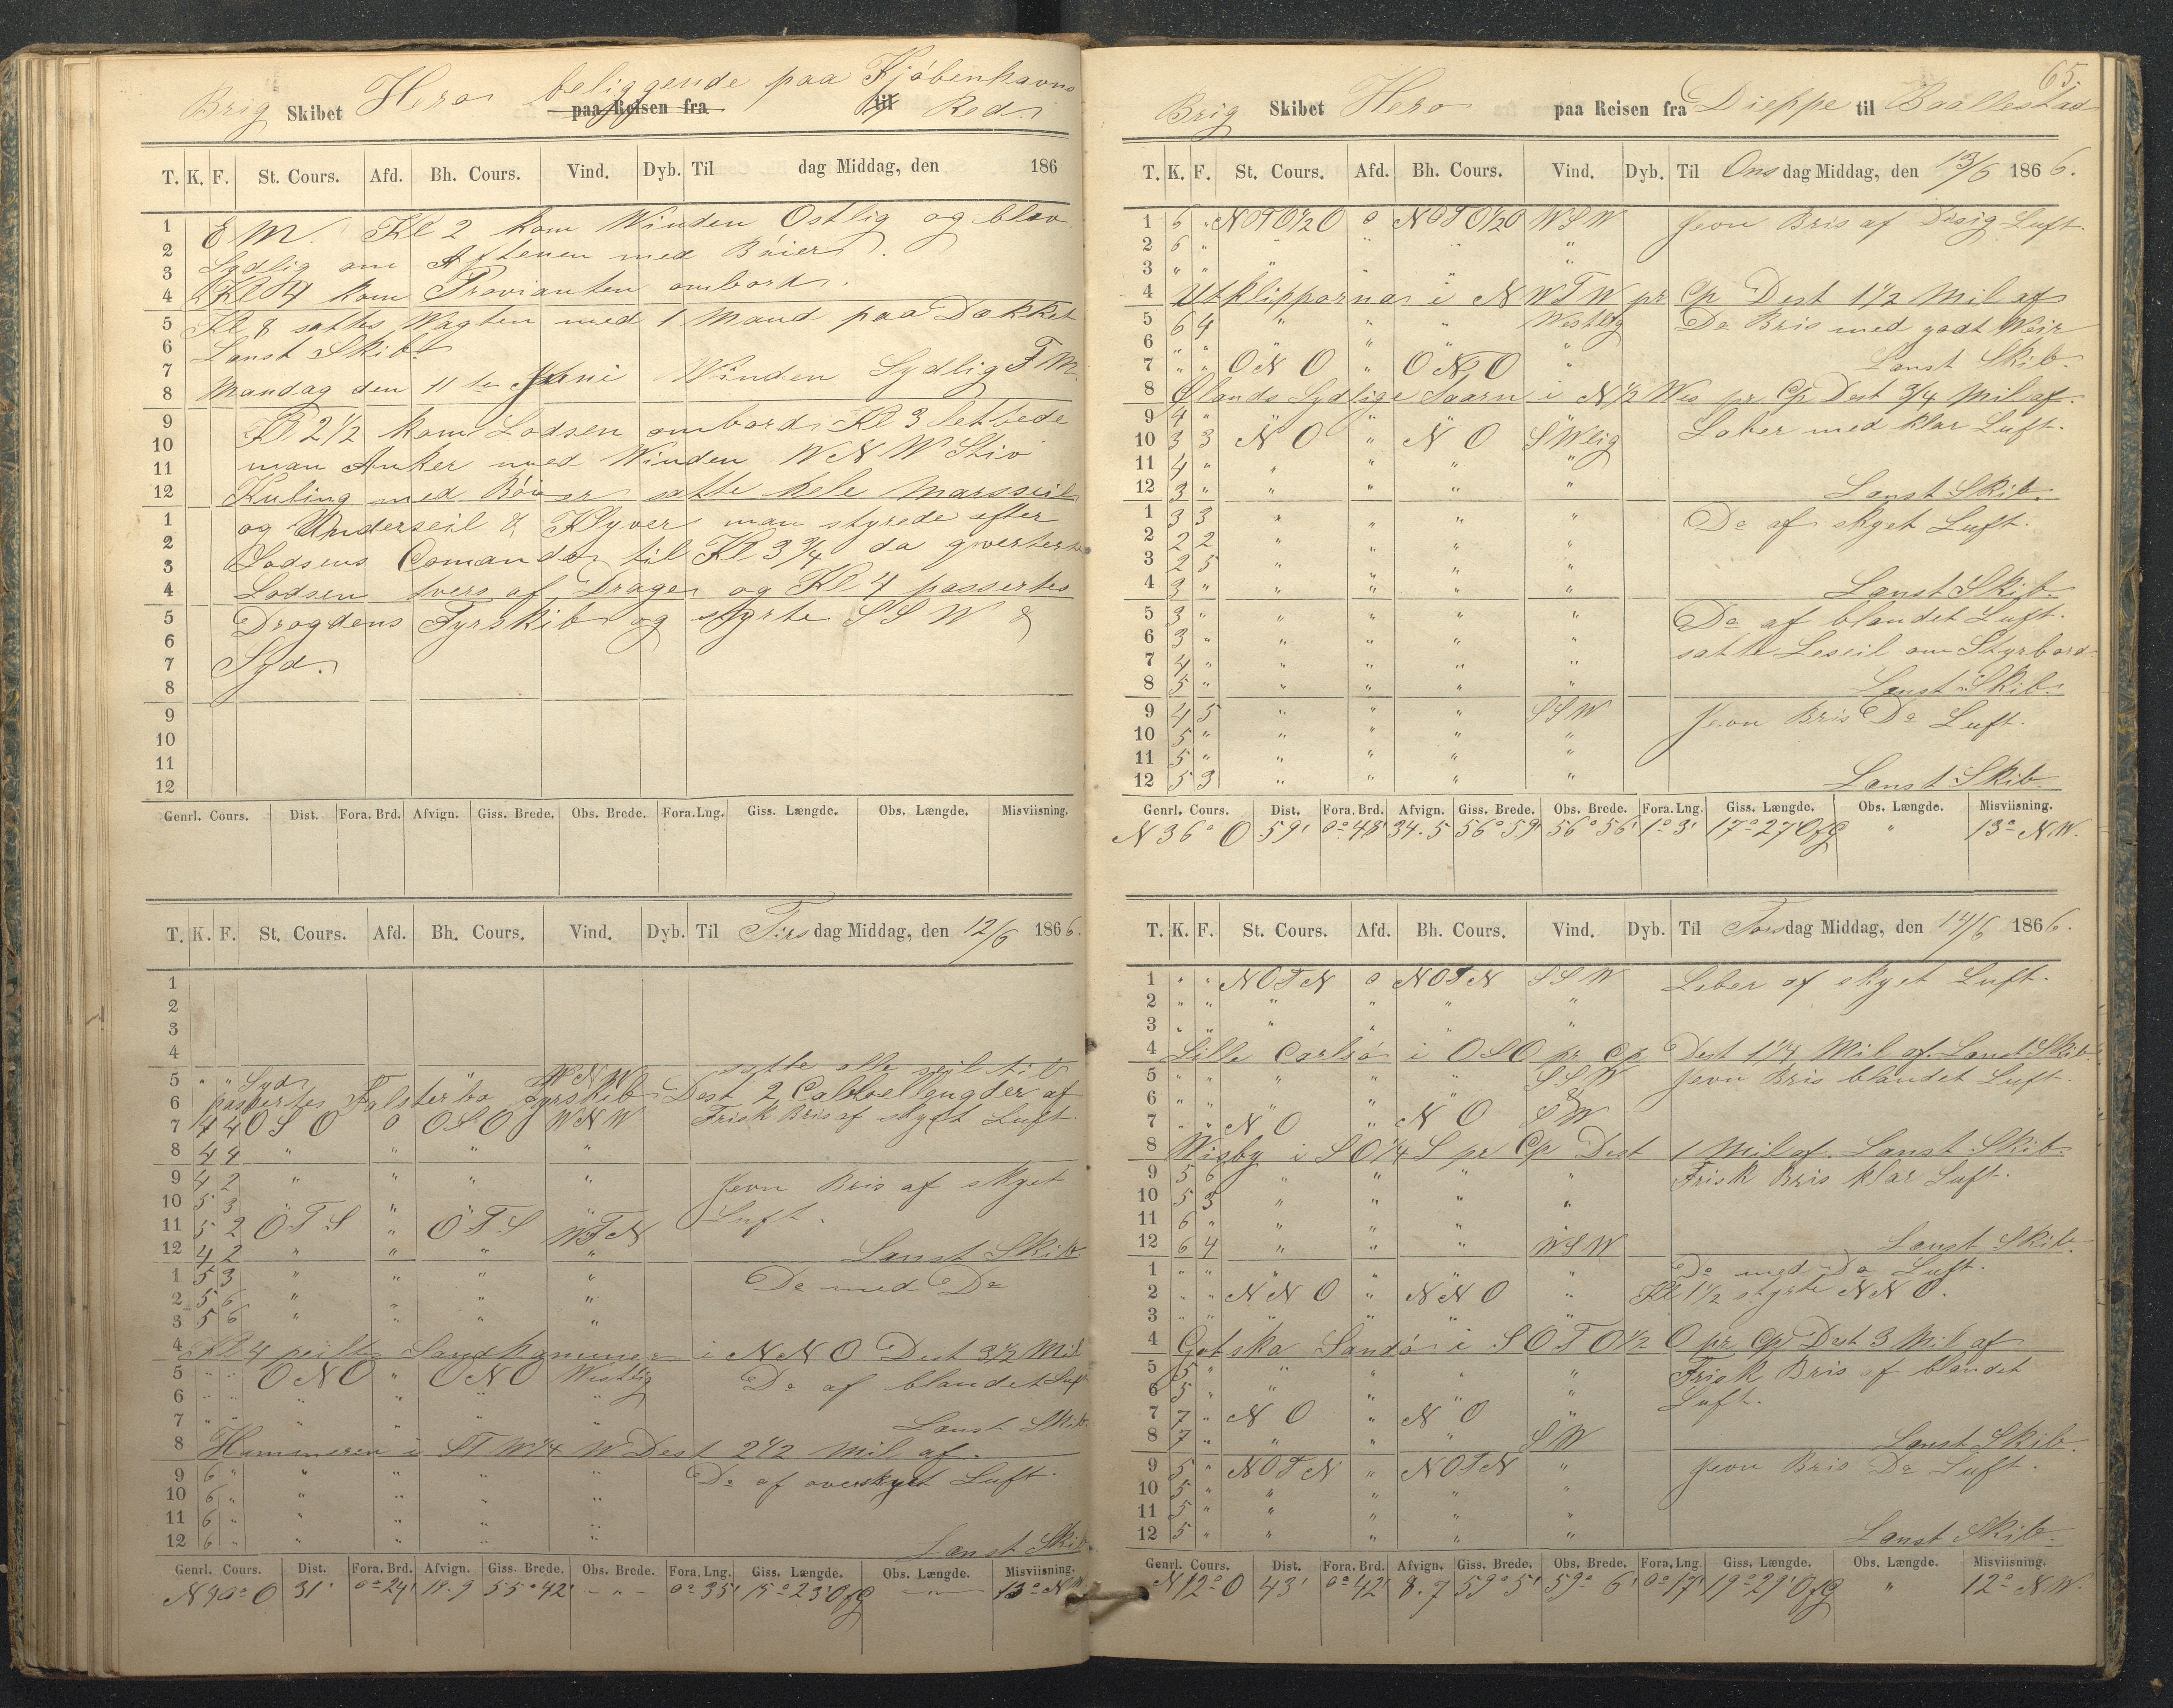 Brig Skibet Hero beliggende paa Kjöbenhavns
paa Reisen fra til Red.
T. K. F. St. Cours. Afd. Bh. Cours. Vind. Dyb. Til dag Middag, den 186
1 E M. Kl 2 kom Winden Ostlig og blev
2 Sydlig om Aftenen med Böier.
3
4 Kl 4 kom Provianten ombord.
5 Kl 8 sattes Wagten med 1 Mand paa Dækket
6 Lænst Skib
7 Mandag den 11te Juni Winden Sydlig F M.
8
9 Kl 2 1/2 kom Lodsen ombord Kl 3 lettede
10 man Anker med Winden W N W Stiv
11
12 Kuling med Böier satte hele Marsseil
1 og Underseil & Klyver man styrede efter
2
3 Lodsens Comando til Kl 3 3/4 da qverterte
4 Lodsen tvers af Dragør og Kl 4 passertes
5 Drogdens Fyrskib og styrte S S W &
6
7 Syd.
8
9
10
11
12
Genrl. Cours. Dist. Fora. Brd. Afvign. Giss. Brede. Obs. Brede. Fora. Lng. Giss. Længde. Obs. Længde. Misviisning.
T. K. F. St. Cours. Afd. Bh. Cours. Vind. Dyb. Til Tirsdag Middag, den 12/6 1866.
1
2
3
4 satte alle seil til
5 " " Syd " W N W
6 passertes Falsterbo Fyrskib Dest 2 Cabbellengder af
7 4 4 O S O 0 O S O W N W Frisk Bris af skyet Luft.
8 4 4 " " " "
9 4 2 " " " " Jevn Bris af skyet
10 5 3 " " " "
11 5 2 O T S " O T S W T N Luft.
12 4 2 " " " " Lænst Skib.
1 5 3 " " " " Do med Do
2 5 6 " " " "
3 5 6 " " " "
4 Kl 4 peiltes Sandhammeren i N N O Dest 3 1/2 Mil
5 " " O N O " O N O Westlig Do af blandet Luft
6 " " " " " "
7 " " " " " " Lænst Skib.
8 Hammeren i S T W 1/4 W Dest 2 1/2 Mil af.
9 6 " " " " " Do af overskyet Luft.
10 6 " " " " "
11 6 " " " " "
12 6 " " " " " Lænst Skib.
Genrl. Cours. Dist. Fora. Brd. Afvign. Giss. Brede. Obs. Brede. Fora. Lng. Giss. Længde. Obs. Længde. Misviisning.
O 31' 0° 24' 19.9 55° 42' — " — 0° 35' 15° 23' OfG — " — 13° N W
65.
Brig Skibet Hero paa Reisen fra Dieppe til Baallestad
T. K. F. St. Cours. Afd. Bh. Cours. Vind. Dyb. Til Onsdag Middag, den 13/6 1866.
1 6 " NOTO 1/2 O 0 NOTO 1/2 O W S W Jevn Bris af Disig Luft.
2 6 " " " " "
3 " " " " " "
4 Utklipporna i N W T W pr Cp Dest 1 1/2 Mil af
5 6 4 " " " Westlig Do Bris med godt Weir
6 " " " " " "
7 " " O N O " O N O " Lænst Skib.
8 Ølands Sydlige Taarn i N 1/2 Wes pr. Cp Dest 3/4 Mil af.
9 4 " " " " " Laber med klar Luft.
10 3 3 N O " N O S Wlig
11 4 " " " " "
12 3 " " " " " Lænst Skib.
1 3 3 " " " " Do af skyet Luft.
2 2 2 " " " "
3 2 5 " " " "
4 3 " " " " " Lænst Skib.
5 3 " " " " " Do af blandet Luft.
6 3 " " " " " satte Leseil om Styrbord
7 4 " " " " "
8 5 " " " " " Lænst Skib.
9 4 5 " " " S S W Jevn Bris Do Luft.
10 5 " " " " "
11 5 " " " " "
12 5 3 " " " " Lænst Skib
Genrl. Cours. Dist. Fora. Brd. Afvign. Giss. Brede. Obs. Brede. Fora. Lng. Giss. Længde. Obs. Længde. Misviisning.
N 36° O 59' 0° 48' 34.5 56° 59' 56° 56' 1° 3' 17° 27' OfG " 13° N.W.
T. K. F. St. Cours. Afd. Bh. Cours. Vind. Dyb. Til Torsdag Middag, den 14/6 1866.
1 " " NOTN 0 NOTN S S W Laber af skyet Luft.
2 " " " " " "
3 " " " " " "
4 Lille Carlsö i O S O pr Cp Dest 1 1/4 Mil af. Lænst Skib.
5 " " " " " S S W Jevn Bris blandet Luft.
6 " " " " " &
7 " " N O " N O S W
8 Wisby i S O 1/4 S pr Cp Dest 1 Mil af. Lænst Skib.
9 5 6 " " " " Frisk Bris klar Luft.
10 5 3 " " " "
11 6 " " " " "
12 6 4 " " " W S W Lænst Skib.
1 " " " " " " Do med Do Luft.
2 " " N N O " N N O " Kl 1 1/2 styrte N N O.
3 " " " " " "
4 Gotska Sandö i S O T O 1/2 O pr Cp Dest 3 Mil af
5 5 " " " " " Frisk Bris af blandet
6 5 " " " " " Luft.
7 7 " N O " N O "
8 7 " " " " S W Lænst Skib.
9 5 " NOTN " NOTN " Jevn Bris Do Luft.
10 5 " " " " "
11 5 " " " " "
12 5 " " " " " Lænst Skib.
Genrl. Cours. Dist. Fora. Brd. Afvign. Giss. Brede. Obs. Brede. Fora. Lng. Giss. Længde. Obs. Længde. Misviisning.
N 12° O 43' 0° 42' 8.7 59° 5' 59° 6' 0° 17' 19° 29' OfG " 12° N.W.